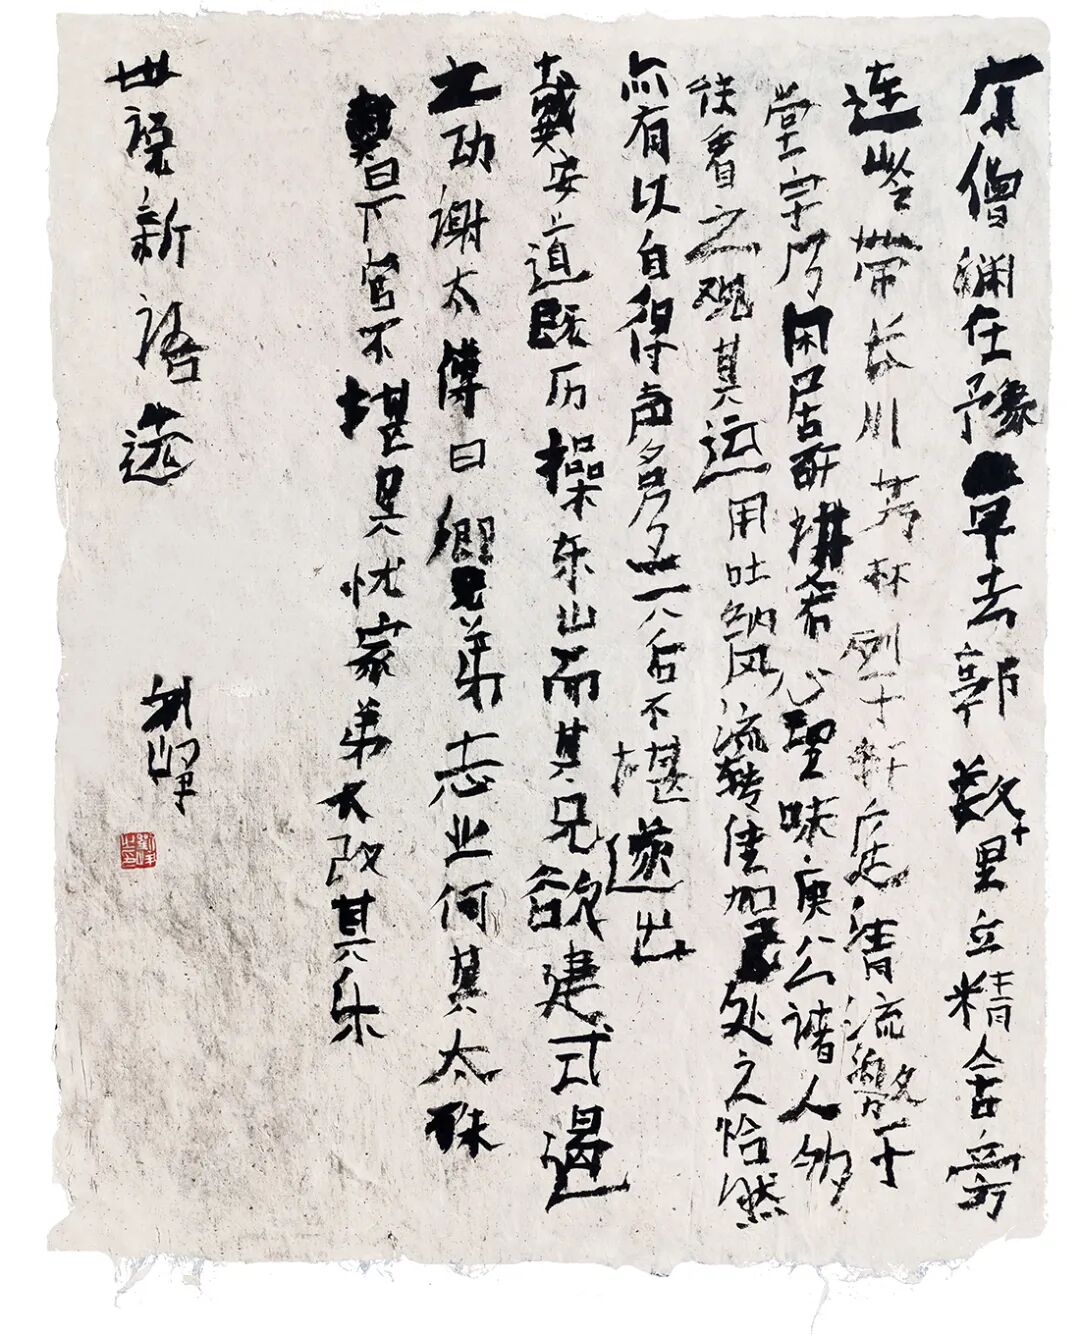 康僧渊在豫章去郭数里立精舍旁
连岭带长川芳林列于轩庭清流激于
堂宇乃闲居研讲希心理味庾公诸人多
往看之观其运用吐纳风流转佳加已处之怡然
亦有以自得声名乃兴后不堪遂出
戴安道既厉操东山而其兄欲建式遏
之功谢太傅曰卿兄弟志业何其太殊
戴曰下官不堪其忧家弟不改其乐
世说新语选
刘峄